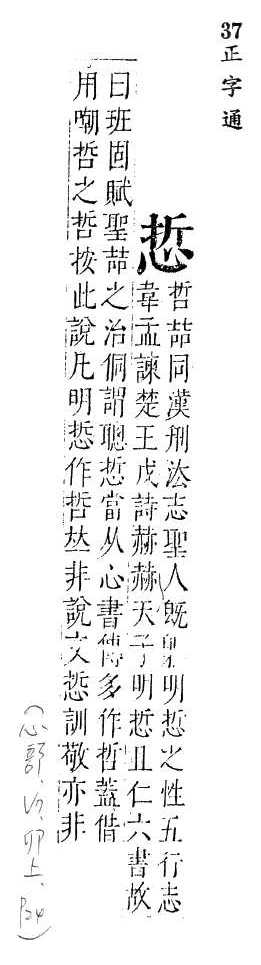 37
正字通
悊
哲喆同漢刑法志聖人既躬明悊之性五行志
韋孟諫楚王戊詩赫赫天子明悊且仁六書故
曰班固賦聖喆之治侗謂聰悊當从心書傳多作哲蓋借
用嘲哲之哲按此說凡明悊作哲𠀤非說文悊訓敬亦非
(心部,卯上,